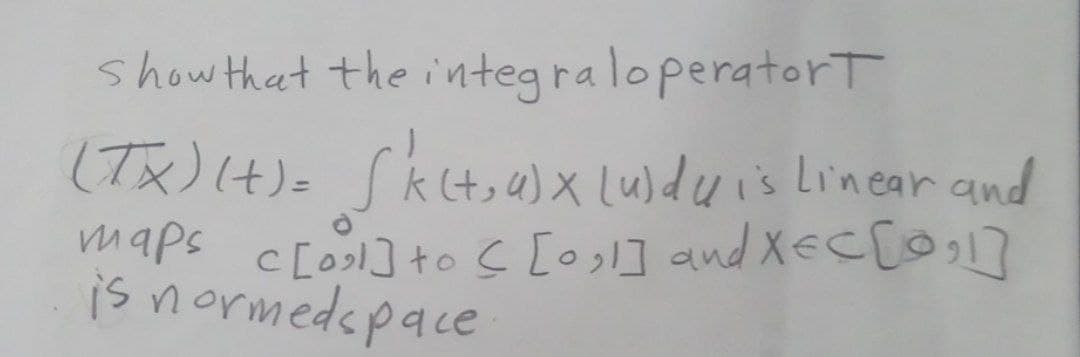 show that the integral operator T
(Tx)(t) = ∫₀¹ k(t,u) x(u) du is linear and
maps C[0,1] to C[0,1] and x∈C[0,1]
is normed space